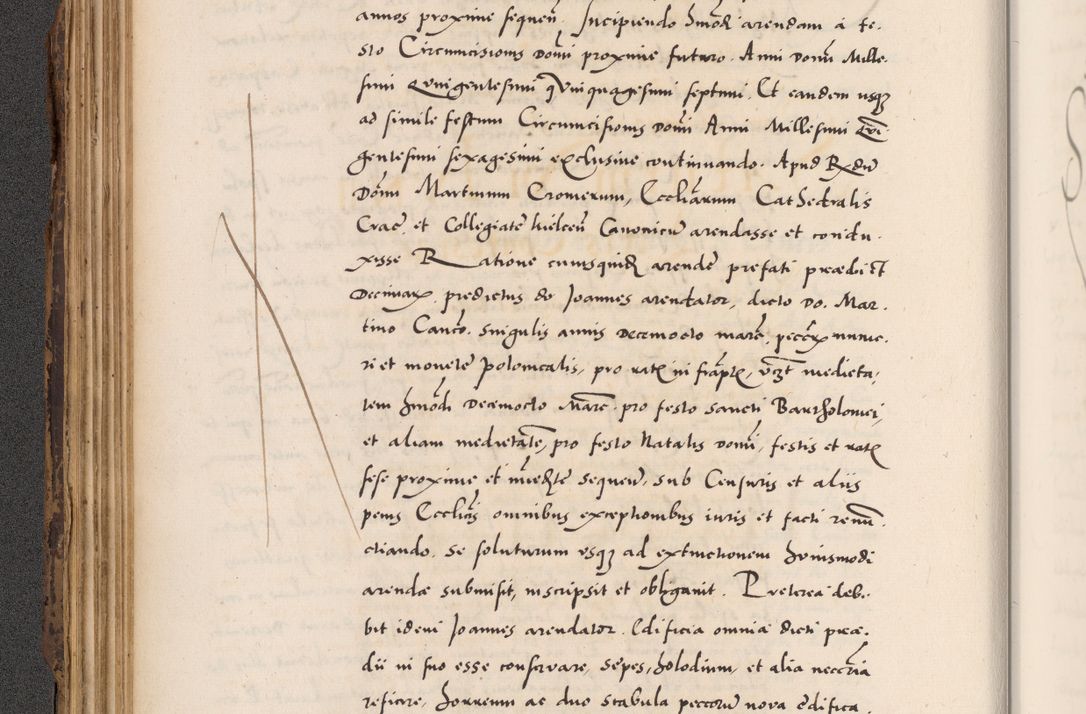 annos proxime sequeñ. Incipiendo hmõi arendam a fe.
sto Circumcisionis Domi proxime futuro. Anni Domi Mille.
simi Quingentesimi Quinquagesimi septimi. Et eandem usq
ad simile festum Circumcisionis Domi Anni Millesimi
gentesimi sexagesimi exclusive continuando. Apud Rxdu
Domi Martinum Cromerum, Eccliarum Cathedralis
Crac̃. et Collegiatẽ kielceñ Canonicum arendasse et condu.
xisse Ratione cuiusquidẽ arendẽ prefati prædict
Decimarx, predictus do Joannes arendator, dicto Do. Mar.
tino Canco. singulis annis decemocto marc̃. peccrx nume.
ri et monetẽ polonicalis, pro ratis in fraptis, vzt medieta,
tem hmõdi Decemocto Marc̃. pro festo Sancti Bartholomei,
et aliam medietatẽ, pro festo Natalis Domi, festis et ratis
sese proxime et imediatẽ sequeñ. sub Censuris et aliis
penis Ecclicis omnibus exceptionibus iuris et facti renũ.
ctiando. se soluturum usq ad extinctionem huiusmodi
arendæ submisit, inscripsit et obligauit. Preterea deb.
bit idem Joannes arendator. Edificia omnia dicti præ.
dii in suo esse conservare, sepes, holodium, et alia necc̃ria
reficere, horreum ac duo stabula peccorũ nova edifica.